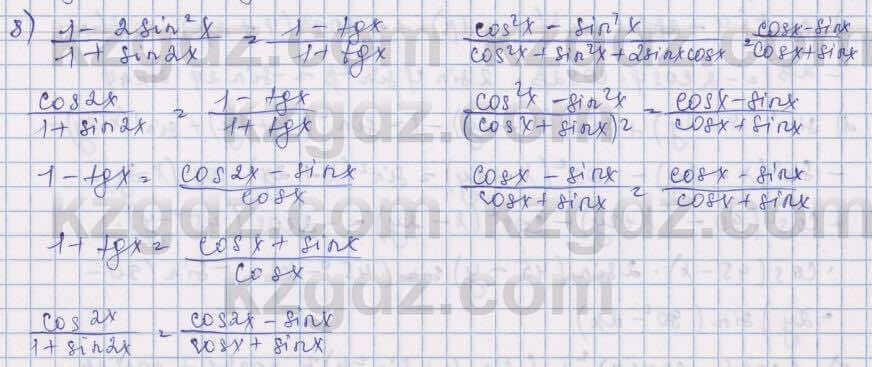 8) (1 - 2sin²x)/(1 + sin2x) = (1 - tgx)/(1 + tgx)
cos2x/(1 + sin2x) = (1 - tgx)/(1 + tgx)
1 - tgx = (cos2x - sinx)/cosx
1 + tgx = (cosx + sinx)/cosx
cos2x/(1 + sin2x) = (cos2x - sinx)/(cosx + sinx)
(cos²x - sin²x)/(cos²x + sin²x + 2sinxcosx) = (cosx - sinx)/(cosx + sinx)
(cos²x - sin²x)/(cosx + sinx)² = (cosx - sinx)/(cosx + sinx)
(cosx - sinx)/(cosx + sinx) = (cosx - sinx)/(cosx + sinx)
kzgdz.com kzgdz.com
kzgdz.com kzgdz.com
kzgdz.com